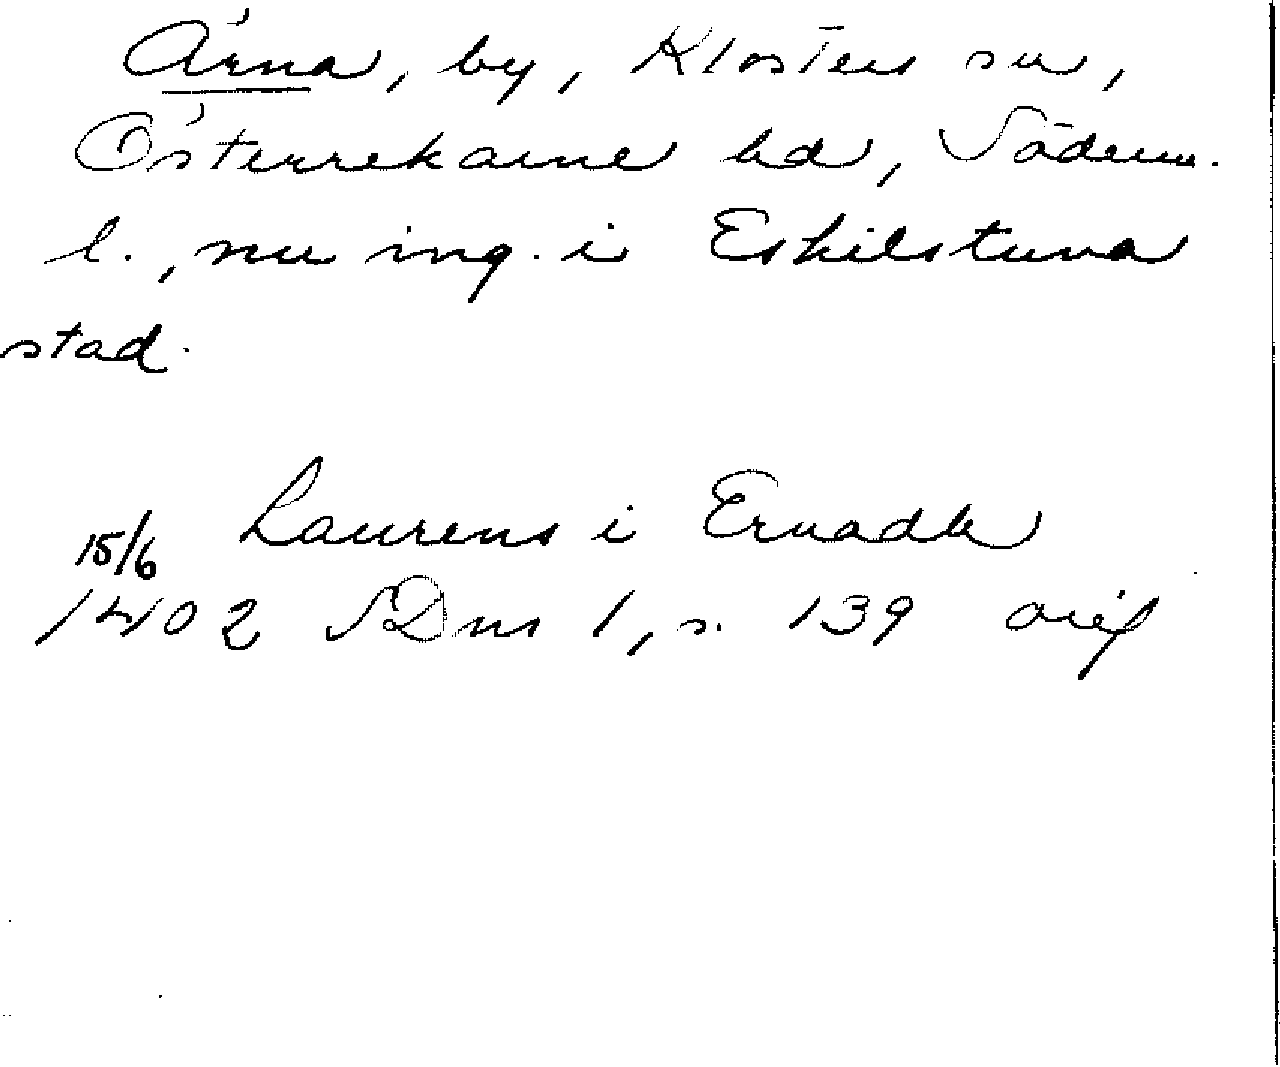 Ärna, by, Klosters sn,
Österrekarne hd, Söderm.
l., nu ing. i Eskilstuna
stad.
15/6 Laurens i Ernadh
1402 SDns 1, s. 139 orig